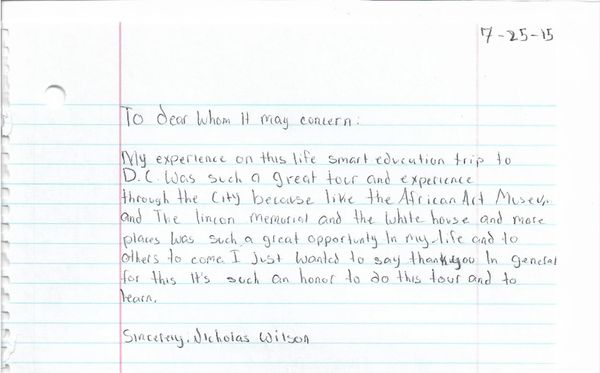 7-25-15
To dear whom It may concern:
My experience on this life smart education trip to
D.C. was such a great tour and experience
through the City because like the African Art Museum
and The lincon memorial and the white house and more
places was such a great opportunty In my life and to
others to come I just wanted to say thank you In general
for this It's such an honor to do this tour and to
learn.
Sincerery, Nicholas Wilson